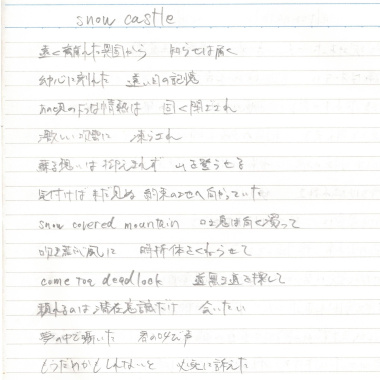 snow castle
遠く離れた異国から 知らせは届く
幼心に刻んだ 遠い日の記憶
あの頃のような情熱は 固く閉ざされ
激しい吹雪に 凍らされ
募る想いは抑えきれず
気付けば まだ見ぬ 約束の地へ向かっていた
snow covered mountain 吐息は白く濁って
吹き荒ぶ風に 時折体をくねらせて
come to a deadlock 道無き道を探して
頼れるのは潜在意識だけ 会いたい
夢の中で聴いた 君の呼ぶ声
もうだめかもしれないと 必死に訴えた